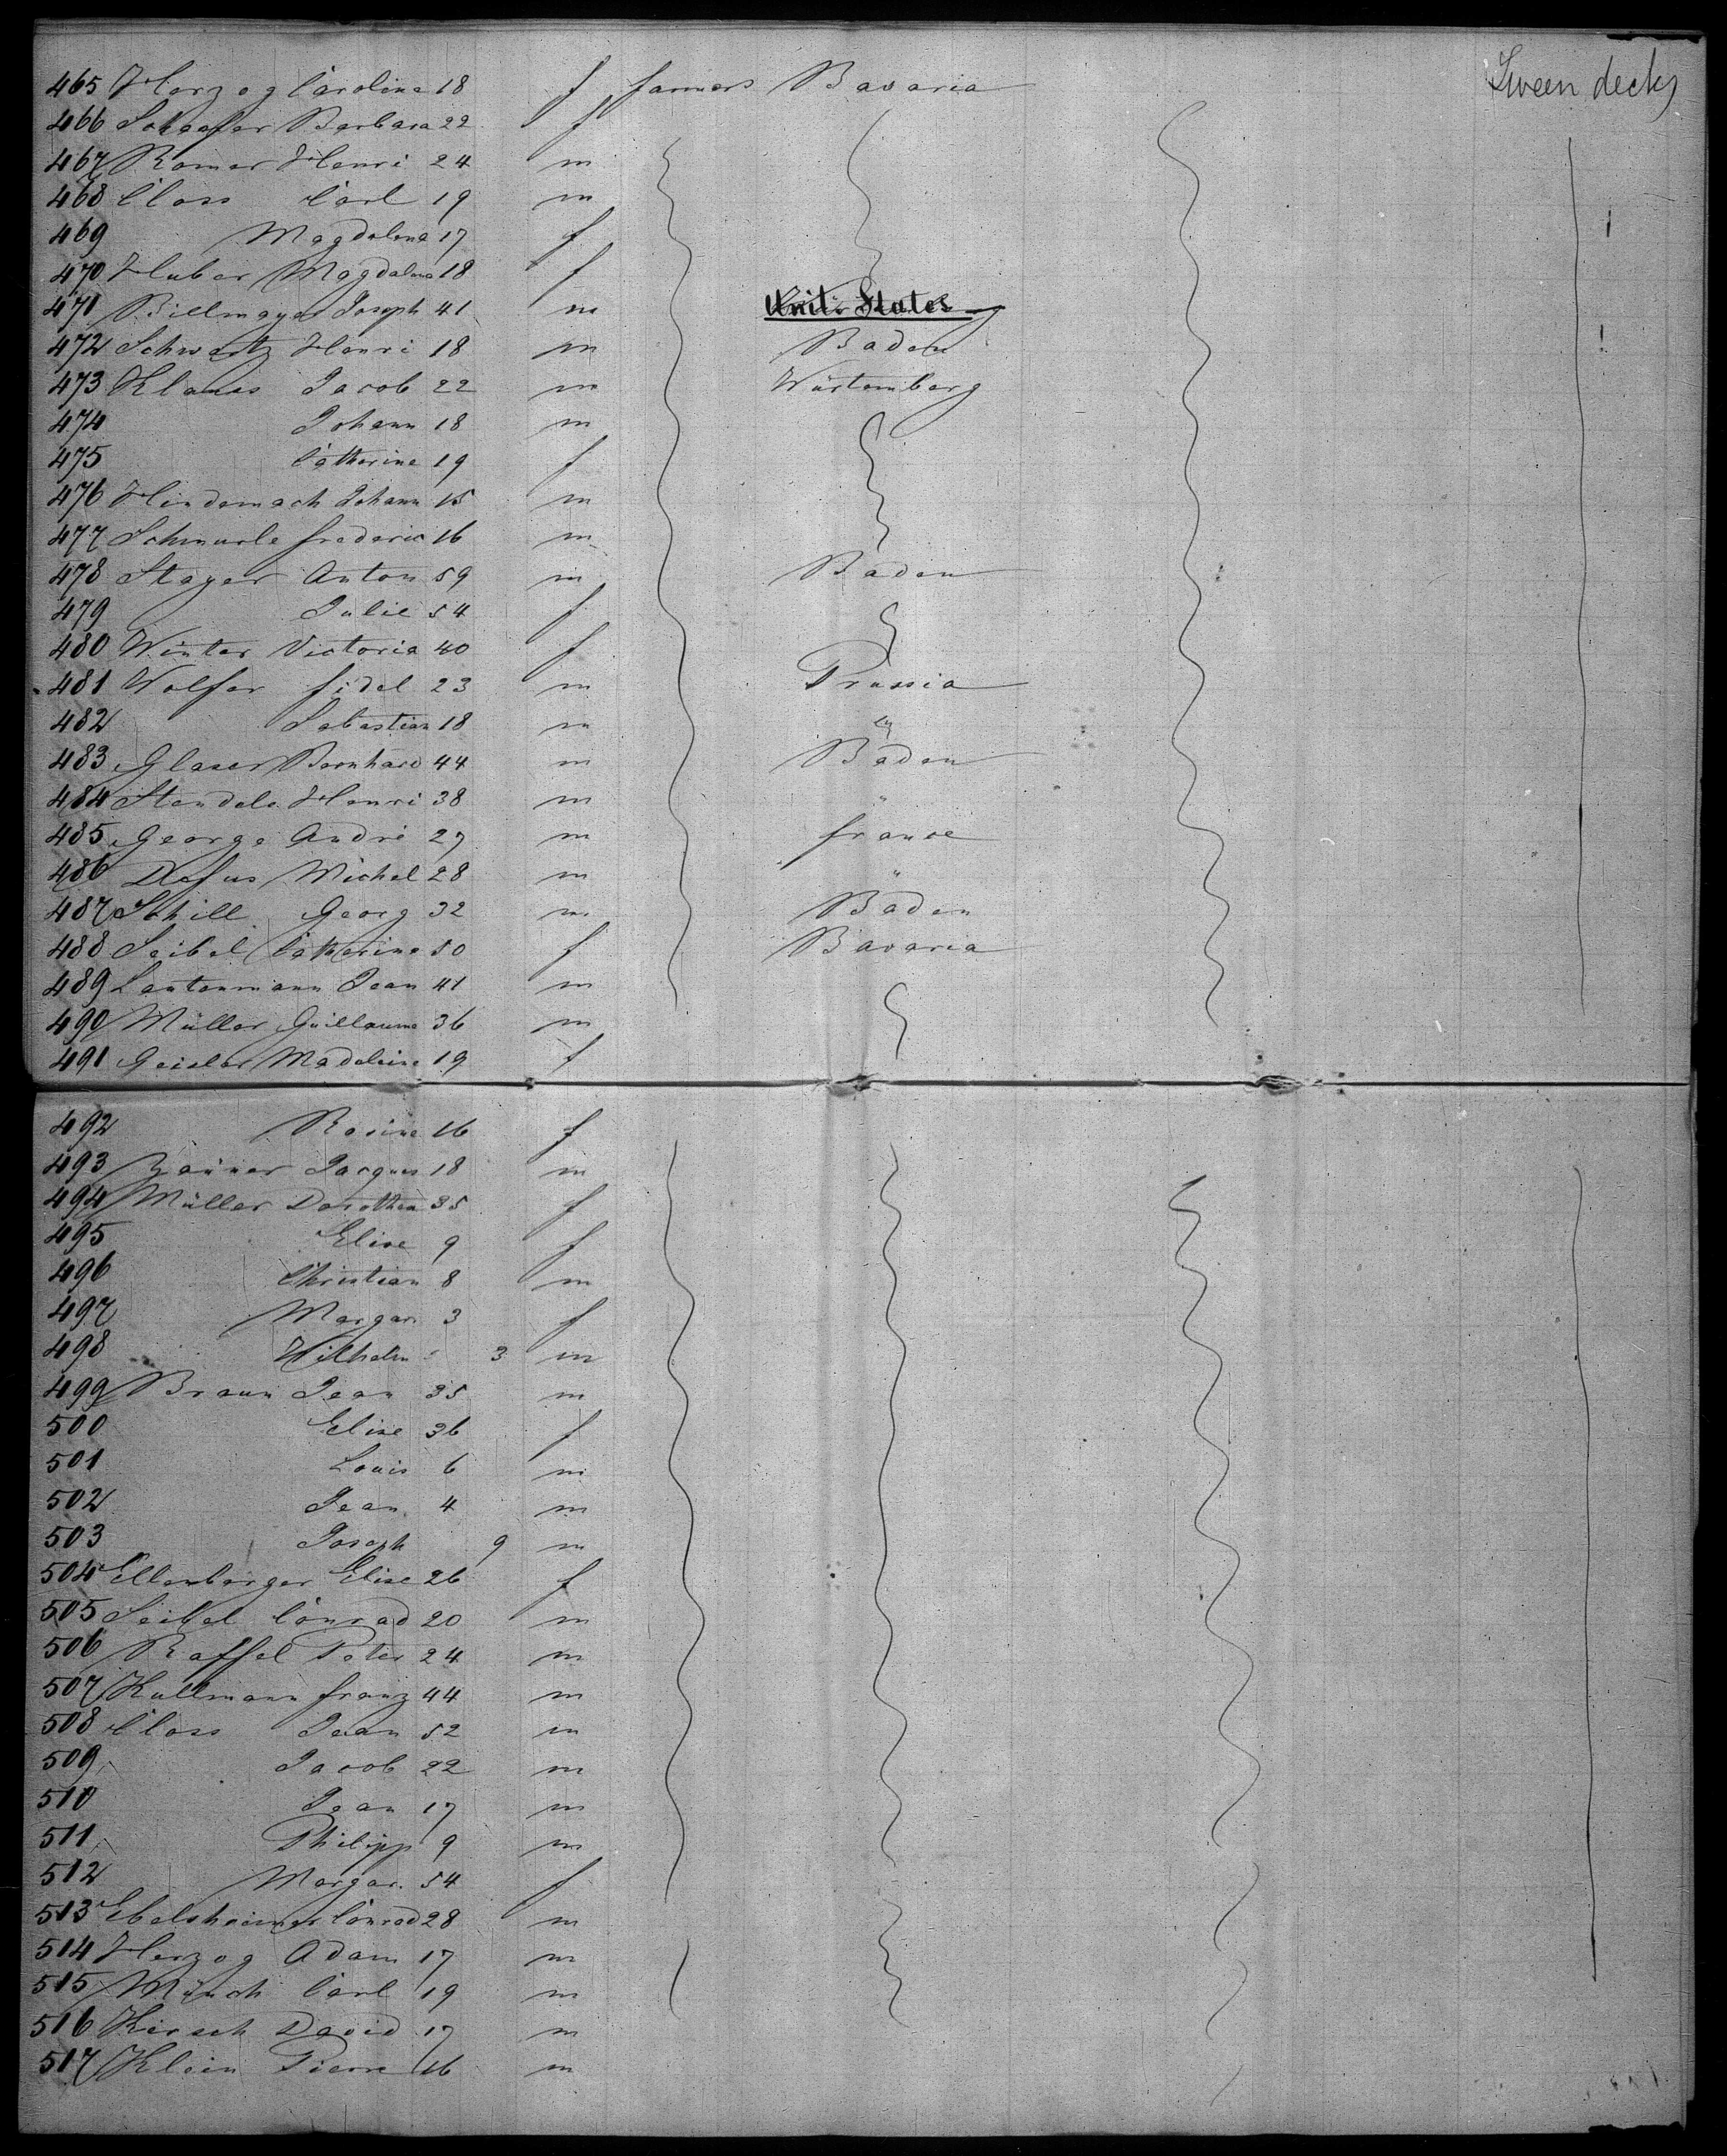 Tween decks
465 Herzog Carolina 18 f farmers Bavaria
466 Schaefer Barbara 22 f
467 Romer Henri 24 m
468 Closs Carl 19 m
469 Magdalena 17 f
470 Huber Magdalena 18 f
471 Billmayer Joseph 41 m Unit. States
472 Schwartz Henri 18 m Baden
473 Klauss Jacob 22 m Würtemberg
474 Johann 18 m
475 Catherine 19 f
476 Hindemach Johann 15 m
477 Schmurle frederic 16 m
478 Stayer Anton 59 m Baden
479 Julie 54 f
480 Winter Victoria 40 f
481 Wolfer fidel 23 m Prussia
482 Sebastian 18 m "
483 Glaser Bernhard 44 m Baden
484 Stendele Henri 38 m "
485 George André 27 m france
486 Dofus Michel 28 m "
487 Schill Georg 32 m Baden
488 Seibel Catherine 50 f Bavaria
489 Lautenmann Jean 41 m
490 Müller Guillaume 36 m
491 Geisler Madeleine 19 f
492 Rosine 16 f
493 Zaüner Jacques 18 m
494 Müller Dorothea 35 f
495 Elise 9 f
496 Christian 8 m
497 Margar. 3 f
498 Wilhelm 3 m
499 Braun Jean 35 m
500 Elise 36 f
501 Louis 6 m
502 Jean 4 m
503 Joseph 9 m
504 Ellenberger Elise 26 f
505 Seibel Conrad 20 m
506 Raffel Peter 24 m
507 Kullmann franz 44 m
508 Closs Jean 52 m
509 Jacob 22 m
510 Jean 17 m
511 Philipp 9 m
512 Margar. 54 f
513 Ebelsheimer Conrad 28 m
514 Herzog Adam 17 m
515 Münch Carl 19 m
516 Hirsch David 17 m
517 Klein Pierre 16 m